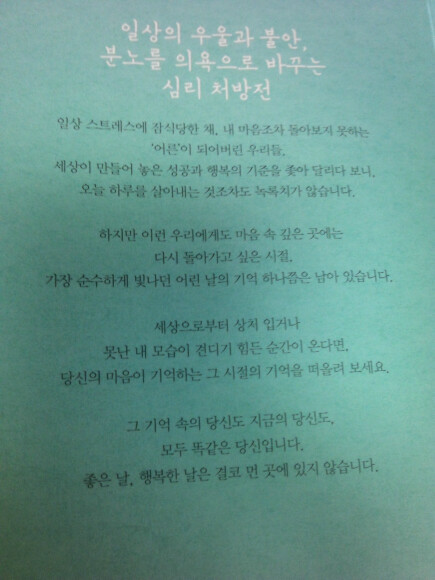 일상의 우울과 불안,
분노를 의욕으로 바꾸는
심리 처방전
일상 스트레스에 잠식당한 채, 내 마음조차 돌아보지 못하는
'어른'이 되어버린 우리들.
세상이 만들어 놓은 성공과 행복의 기준을 좇아 달리다 보니,
오늘 하루를 살아내는 것조차도 녹록치가 않습니다.
하지만 이런 우리에게도 마음 속 깊은 곳에는
다시 돌아가고 싶은 시절,
가장 순수하게 빛나던 어린 날의 기억 하나쯤은 남아 있습니다.
세상으로부터 상처 입거나
못난 내 모습이 견디기 힘든 순간이 온다면,
당신의 마음이 기억하는 그 시절의 기억을 떠올려 보세요.
그 기억 속의 당신도 지금의 당신도,
모두 똑같은 당신입니다.
좋은 날, 행복한 날은 결코 먼 곳에 있지 않습니다.